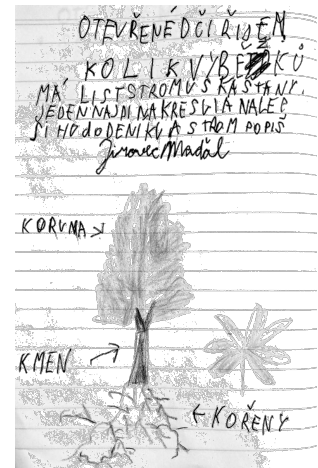 OTEVŘENÉ OČI ŘÍJEN
KOLIK VÝBĚŽKŮ
MÁ LIST STROMU S KAŠTANY.
JEDEN NAJDI NAKRESLI A NALEP
SI HO DO DENÍKU A STROM POPIŠ
KORUNA
KMEN
KOŘENY